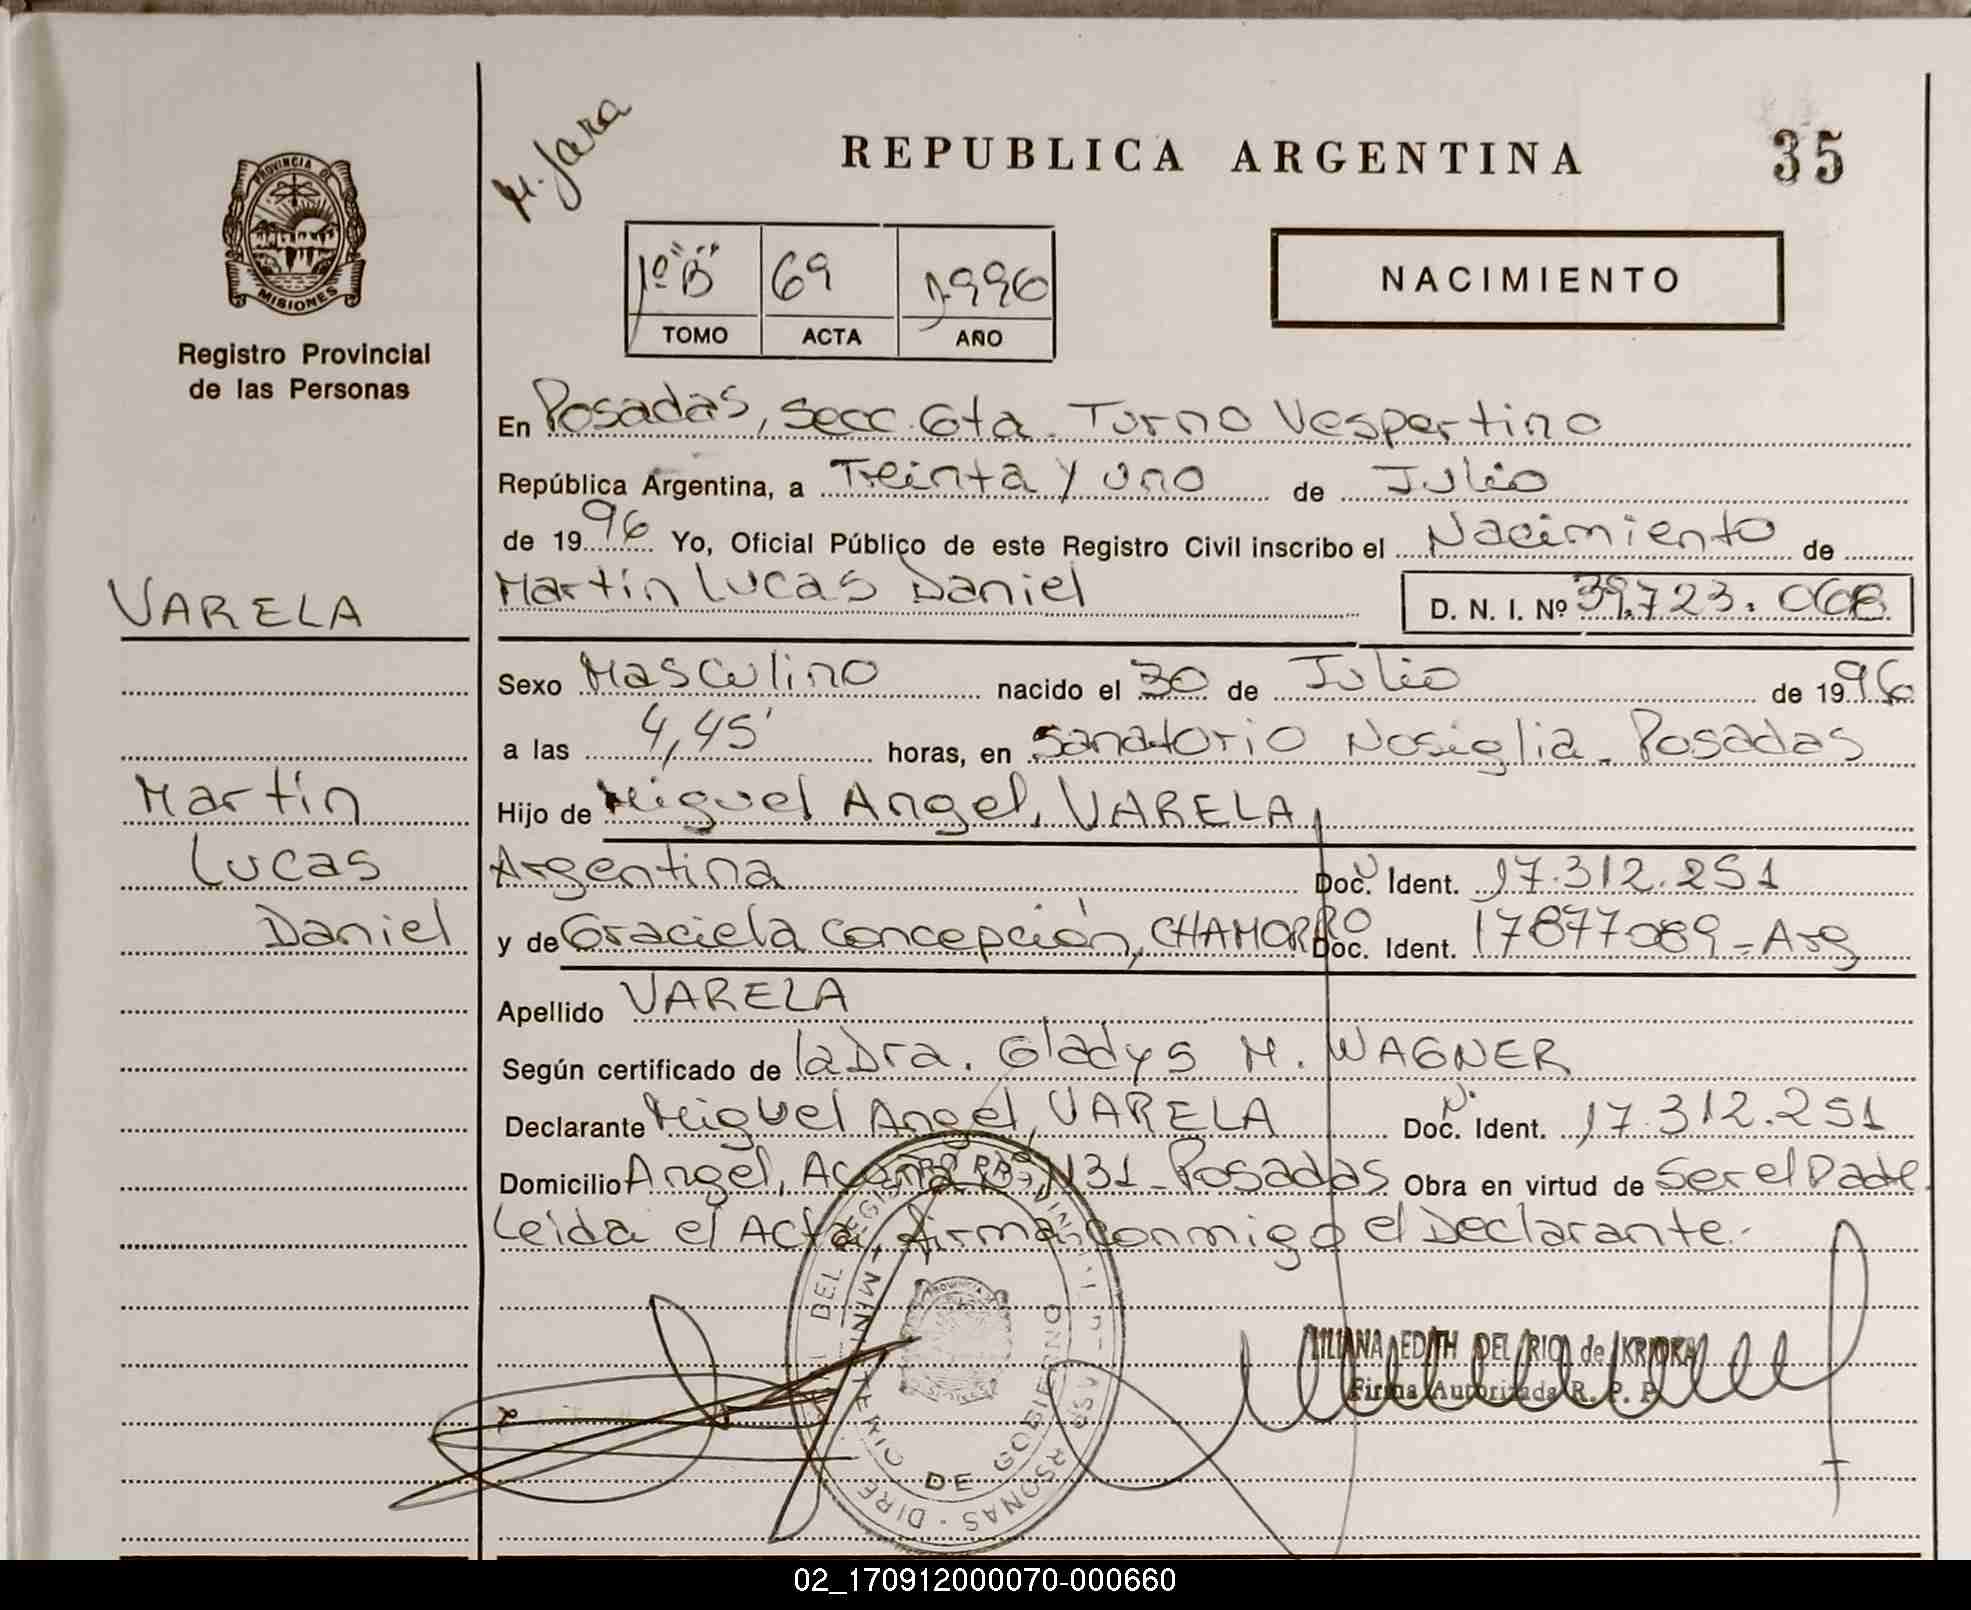 M. Jara
REPUBLICA ARGENTINA
35
PROVINCIA DE
MISIONES
Registro Provincial
de las Personas
1º "B" 69 1996
TOMO ACTA AÑO
NACIMIENTO
En Posadas, Secc. 6ta. Turno Vespertino
República Argentina, a Treinta y uno de Julio
de 1996 Yo, Oficial Público de este Registro Civil inscribo el Nacimiento de
VARELA
Martín Lucas Daniel D. N. I. Nº 39.723.068
Sexo Masculino nacido el 30 de Julio de 1996
a las 4,45' horas, en Sanatorio Nosiglia. Posadas
Martín
Hijo de Miguel Angel, VARELA
Lucas
Argentina Doc. Ident. 17.312.251
Daniel
y de Graciela Concepción, CHAMORRO Doc. Ident. 17877089-Arg
Apellido VARELA
Según certificado de la Dra. Gladys M. WAGNER
Declarante Miguel Angel, VARELA Doc. Ident. 17.312.251
Domicilio Angel, Acuña Nº 1131-Posadas Obra en virtud de Ser el Padre
Leída el Acta, firma conmigo el Declarante.-
LILIANA EDITH DEL RIO de
Firma Autorizada R. P. P.
MINISTERIO DE GOBIERNO
02_170912000070-000660